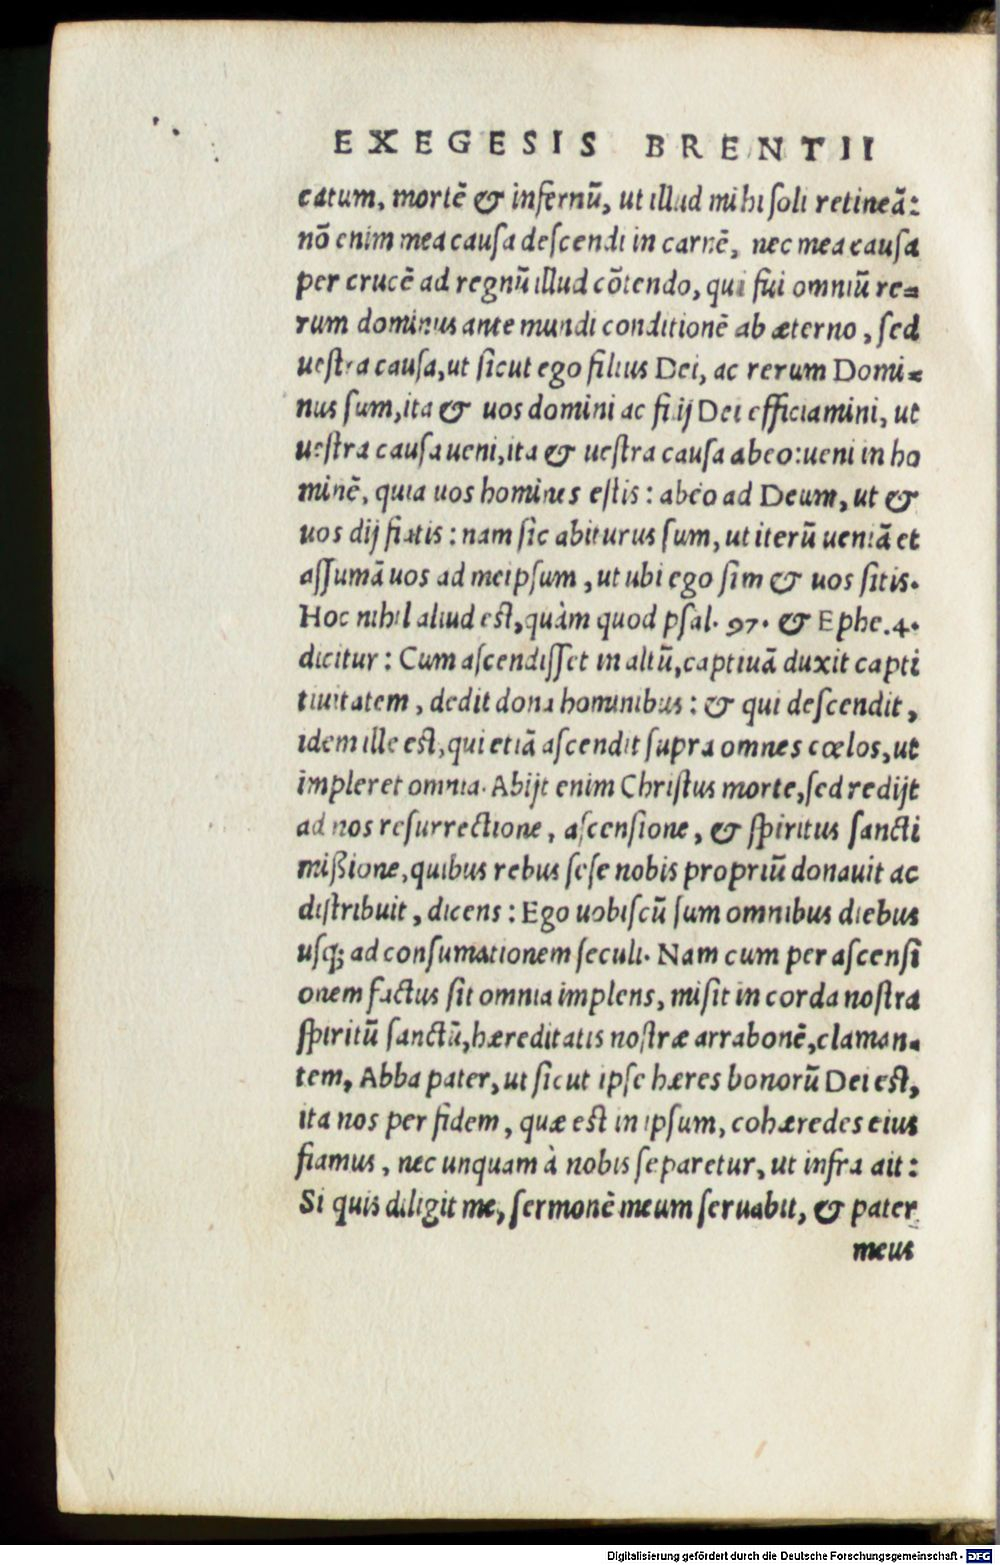 EXEGESIS BRENTII
catum, mortē & infernū, ut illud mihi soli retineā:
nō enim mea causa descendi in carnē, nec mea causa
per crucē ad regnū illud cōtendo, qui fui omniū re=
rum dominus ante mundi conditionē ab æterno, sed
uestra causa, ut sicut ego filius Dei, ac rerum Domi=
nus sum, ita & uos domini ac filij Dei efficiamini, ut
uestra causa ueni, ita & uestra causa abeo: ueni in ho
minē, quia uos homines estis: abeo ad Deum, ut &
uos dij fiatis: nam sic abiturus sum, ut iterū ueniā et
assumā uos ad meipsum, ut ubi ego sim & uos sitis.
Hoc nihil aliud est, quàm quod psal. 97. & Ephe. 4.
dicitur: Cum ascendisset in altū, captiuā duxit capti
tiuitatem, dedit dona hominibus: & qui descendit,
idem ille est, qui etiā ascendit supra omnes cœlos, ut
impleret omnia. Abijt enim Christus morte, sed redijt
ad nos resurrectione, ascensione, & spiritus sancti
mißione, quibus rebus sese nobis propriū donauit ac
distribuit, dicens: Ego uobiscū sum omnibus diebus
usq; ad consumationem seculi. Nam cum per ascensi
onem factus sit omnia implens, misit in corda nostra
spiritū sanctū, hæreditatis nostræ arrabonē, claman=
tem, Abba pater, ut sicut ipse hæres bonorū Dei est,
ita nos per fidem, quæ est in ipsum, cohæredes eius
fiamus, nec unquam à nobis separetur, ut infra ait:
Si quis diligit me, sermonē meum seruabit, & pater
meus
Digitalisierung gefördert durch die Deutsche Forschungsgemeinschaft - DFG